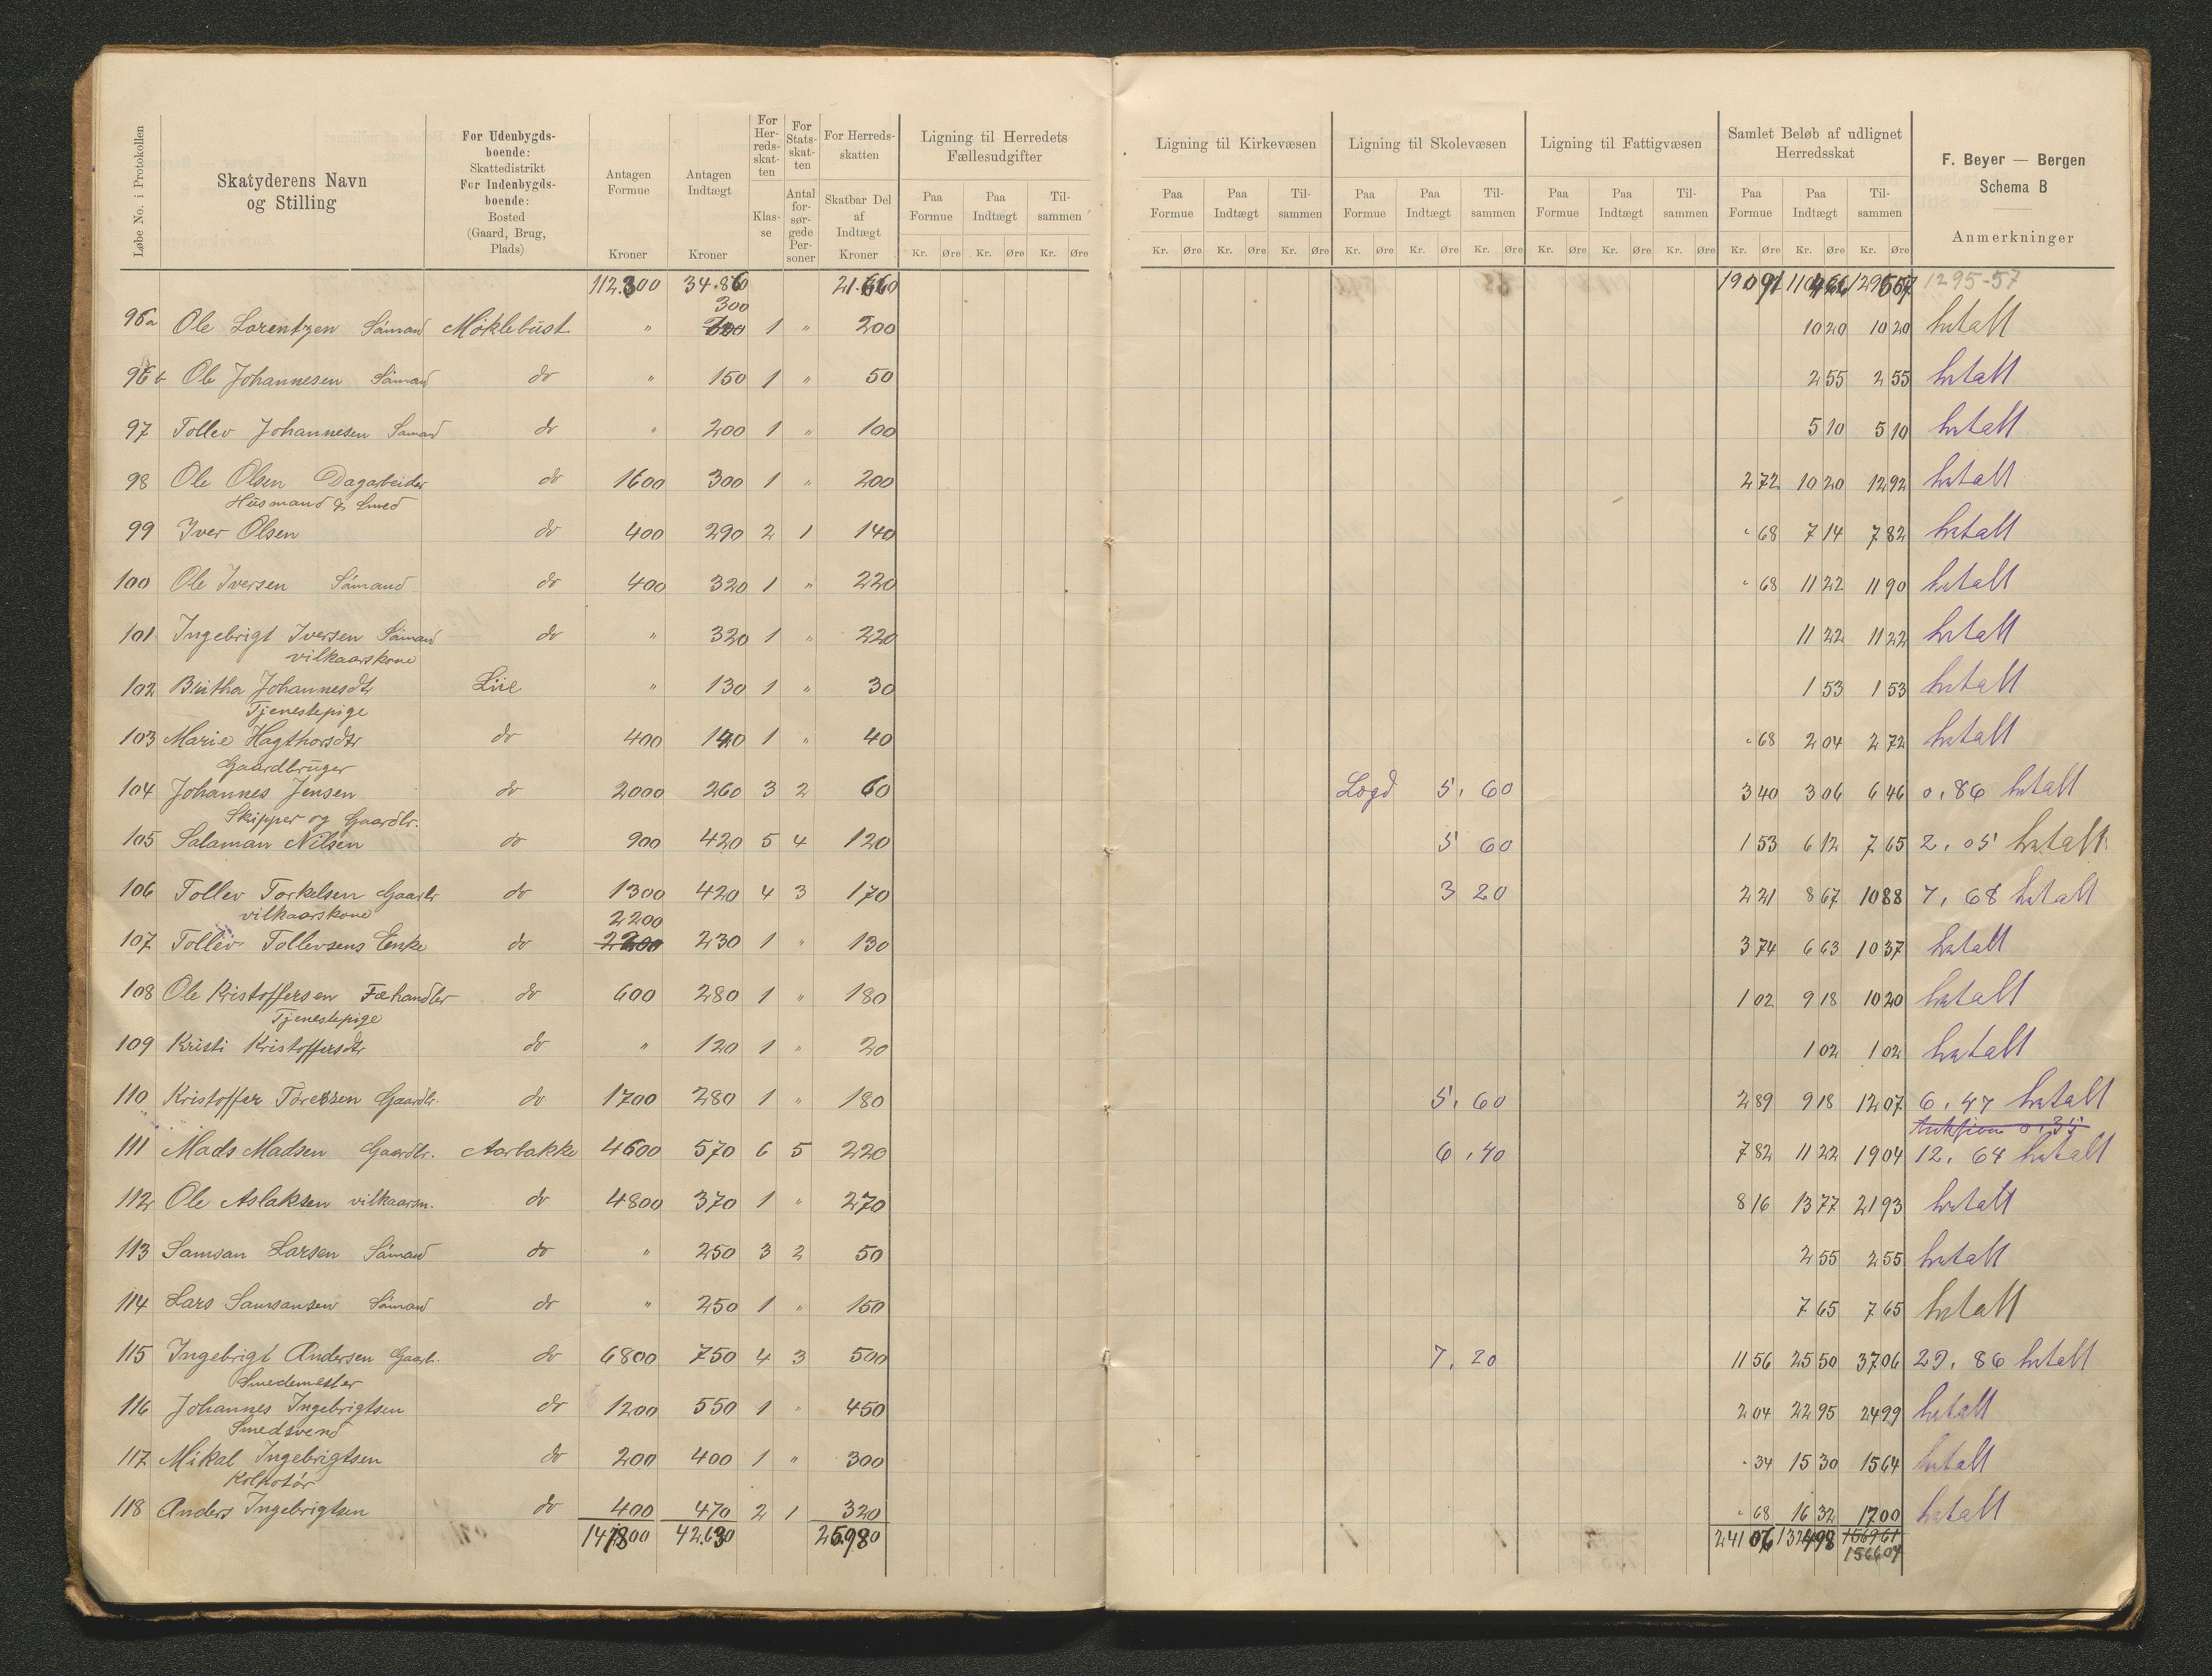 Løbe No. i Protokollen
Skatyderens Navn
og Stilling
For Udenbygds-
boende:
Skattedistrikt
For Indenbygds-
boende:
Bosted
(Gaard, Brug,
Plads)
Antagen
Formue
Kroner
Antagen
Indtægt
Kroner
For
Her-
reds-
skat-
ten
Klas-
se
For
Stats-
skat-
ten
Antal
for-
sør-
gede
Per-
soner
For Herreds-
skatten
Skatbar Del
af
Indtægt
Kroner
Ligning til Herredets
Fællesudgifter
Paa Formue Paa Indtægt Til-sammen
Kr. Øre Kr. Øre Kr. Øre
Ligning til Kirkevæsen
Paa Formue Paa Indtægt Til-sammen
Kr. Øre Kr. Øre Kr. Øre
Ligning til Skolevæsen
Paa Formue Paa Indtægt Til-sammen
Kr. Øre Kr. Øre Kr. Øre
Ligning til Fattigvæsen
Paa Formue Paa Indtægt Til-sammen
Kr. Øre Kr. Øre Kr. Øre
Samlet Beløb af udlignet
Herredsskat
Paa Formue Paa Indtægt Til-sammen
Kr. Øre Kr. Øre Kr. Øre
F. Beyer — Bergen
Schema B
Anmerkninger
112.300 34.860 21.660 190 91 1104 66 1295 57 1295-57
300
96a Ole Lorentzen Sömand Möklebust " 1 " 200 10 20 10 20 betalt
96b Ole Johannesen Sömand do " 150 1 " 50 2 55 2 55 betalt
97 Tollev Johannesen Sömand do " 200 1 " 100 5 10 5 10 betalt
98 Ole Olsen Dagarbeider do 1600 300 1 " 200 2 72 10 20 12 92 betalt
Husmand & Smed
99 Iver Olsen do 400 290 2 1 140 " 68 7 14 7 82 betalt
100 Ole Iversen Sömand do 400 320 1 " 220 " 68 11 22 11 90 betalt
101 Ingebrigt Iversen Sömand do " 320 1 " 220 11 22 11 22 betalt
vilkaarskone
102 Birtha Johannesdtr Lie " 130 1 " 30 1 53 1 53 betalt
Tjenestepige
103 Marie Hagthorsdtr do 400 140 1 " 40 " 68 2 04 2 72 betalt
Gaardbruger
104 Johannes Jensen do 2000 260 3 2 60 Logd 5,60 3 40 3 06 6 46 0,86 betalt
Skipper og Gaardbr.
105 Salaman Nilsen do 900 420 5 4 120 5 60 1 53 6 12 7 65 2,05 betalt
106 Tollev Torkelsen Gaardbr do 1300 420 4 3 170 3 20 2 21 8 67 10 88 7,68 betalt
vilkaarskone 2200
107 Tollev Tollevsens Enke do 230 1 " 130 3 74 6 63 10 37 betalt
108 Ole Kristoffersen Fæhandler do 600 280 1 " 180 1 02 9 18 10 20 betalt
Tjenestepige
109 Kristi Kristoffersdtr do " 120 1 " 20 1 02 1 02 betalt
110 Kristoffer Toressen Gaardbr. do 1700 280 1 " 180 5,60 2 89 9 18 12 07 6,47 betalt
Auksjion 0,35
111 Mads Madsen Gaardbr. Aarbakke 4600 570 6 5 220 6,40 7 82 11 22 19 04 12,64 betalt
112 Ole Aslaksen vilkaarsm. do 4800 370 1 " 270 8 16 13 77 21 93 betalt
113 Samson Larsen Sömand do " 250 3 2 50 2 55 2 55 betalt
114 Lars Samsonsen Sömand do " 250 1 " 150 7 65 7 65 betalt
115 Ingebrigt Andersen Gaardb. do 6800 750 4 3 500 7,20 11 56 25 50 37 06 29,86 betalt
Smedemester
116 Johannes Ingebrigtsen do 1200 550 1 " 450 2 04 22 95 24 99 betalt
Smedsvend
117 Mikal Ingebrigtsen do 200 400 1 " 300 " 34 15 30 15 64 betalt
Kolportör
118 Anders Ingebrigtsen do 400 470 2 1 320 " 68 16 32 17 00 betalt
147800 42.630 25.980 241 06 1324 98 1569 61
1566 04